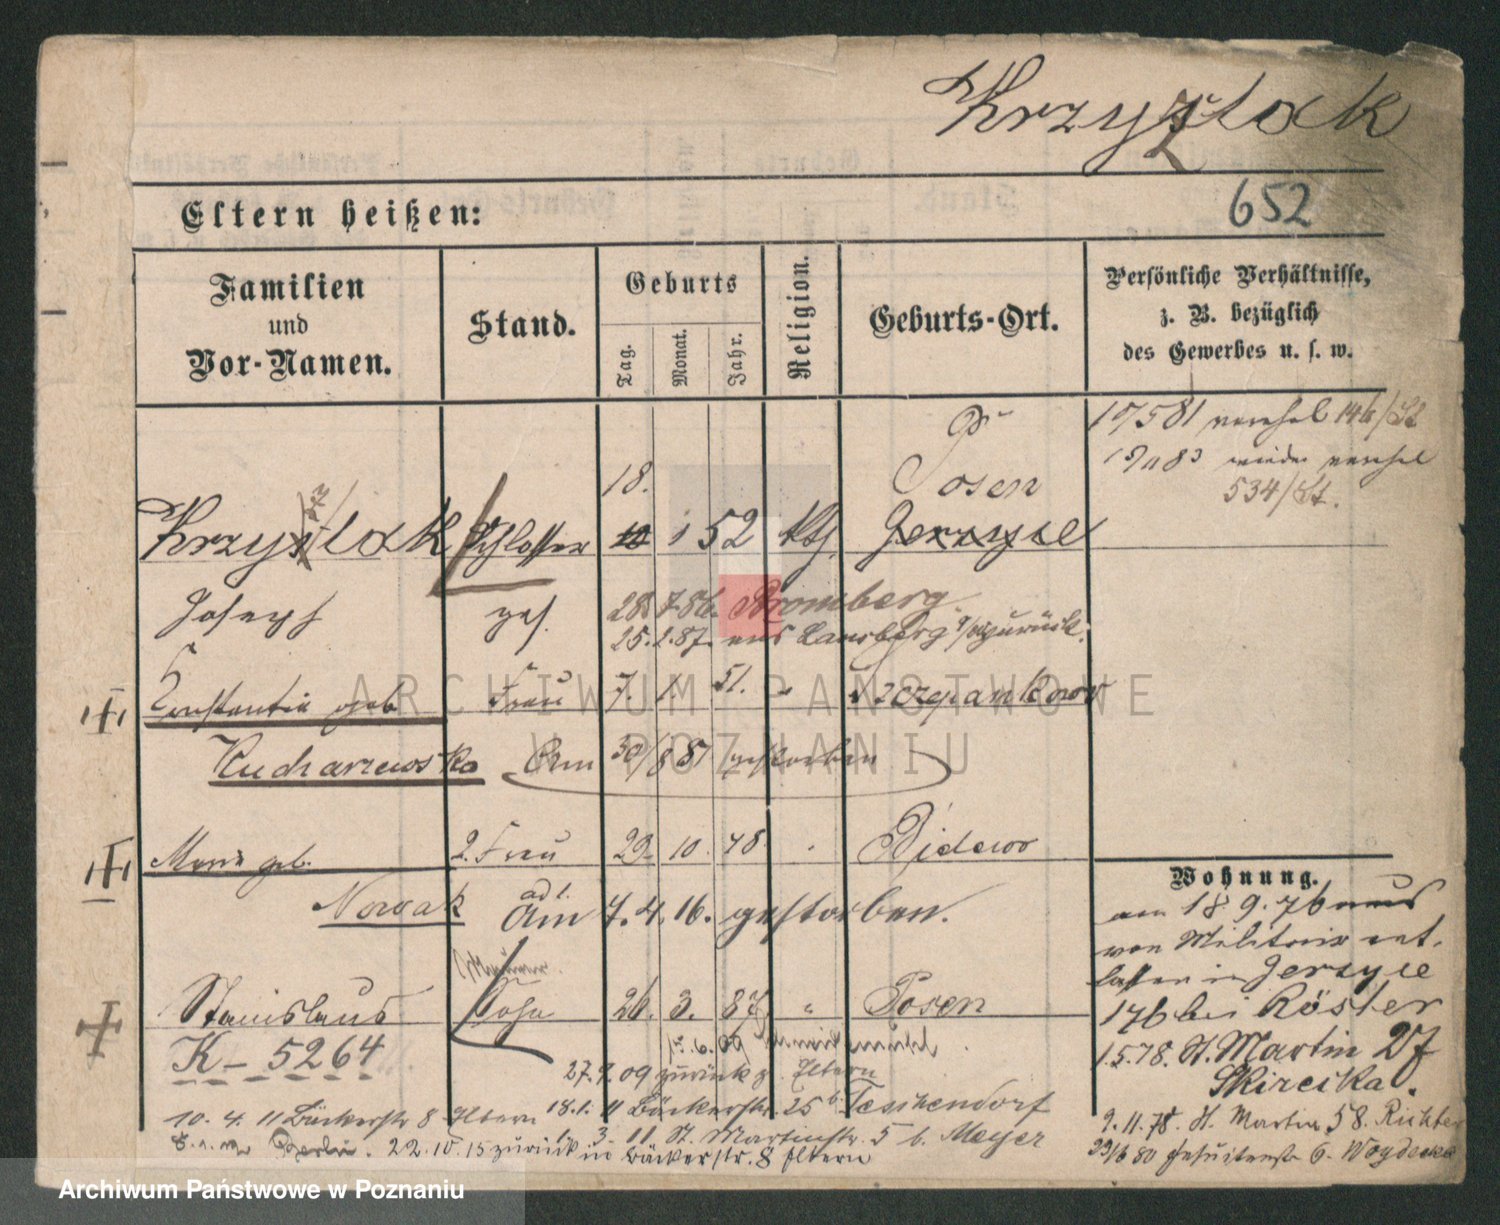 Krzyżtok
652
Eltern heißen:
Familien
und
Vor-Namen.
Stand.
Geburts
Tag.
Monat.
Jahr.
Religion.
Geburts-Ort.
Persönliche Verhältnisse,
z. B. bezüglich
des Gewerbes u. s. w.
146/St
534/St.
18.
Posen
Krzyztok Schlosser 10 1 52 kth Jerzyce
Joseph gesch. 28. 7 86. Bromberg
25. 1. 87. aus Landsberg zurück.
Constantia geb. Frau 7. 1. 51. " Szczepankowo
Kucharzewska Am 30/8 81 gestorben
Marie geb. 2. Frau 29. 10. 48.
Nowak
Am 7. 4. 16. gestorben.
Stanislaus Sohn 26. 3. 87 " Posen
K - 5264
27. 9. 09 zurück z. Eltern
10. 4. 11 Bäckerstr 8 Eltern 18. 1. 11 Bäckerstr. 25 b. Teschendorf
1. 3. 11. St. Martinstr. 5 b. Meyer
Berlin. 22. 10. 15 zurück in Bäckerstr. 8 Eltern
Wohnung.
am 18. 9. 76
von Militair ent-
lassen in Jerzyce
146 bei Röster
1.5.78. St. Martin 27
Skireska.
9. 11. 78. St. Martin 58. Richter
29/6 80 Jesuitenstr 6.
ARCHIWUM PAŃSTWOWE
W POZNANIU
Archiwum Państwowe w Poznaniu